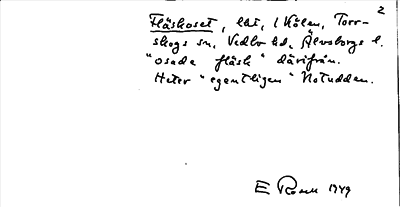 2
Fläskoset, lht, i Kölen, Torr-
skogs sn, Vedbo hd, Älvsborgs l.
"osade fläsk" därifrån.
Heter "egentligen" Notudden.
E Rosell 1949